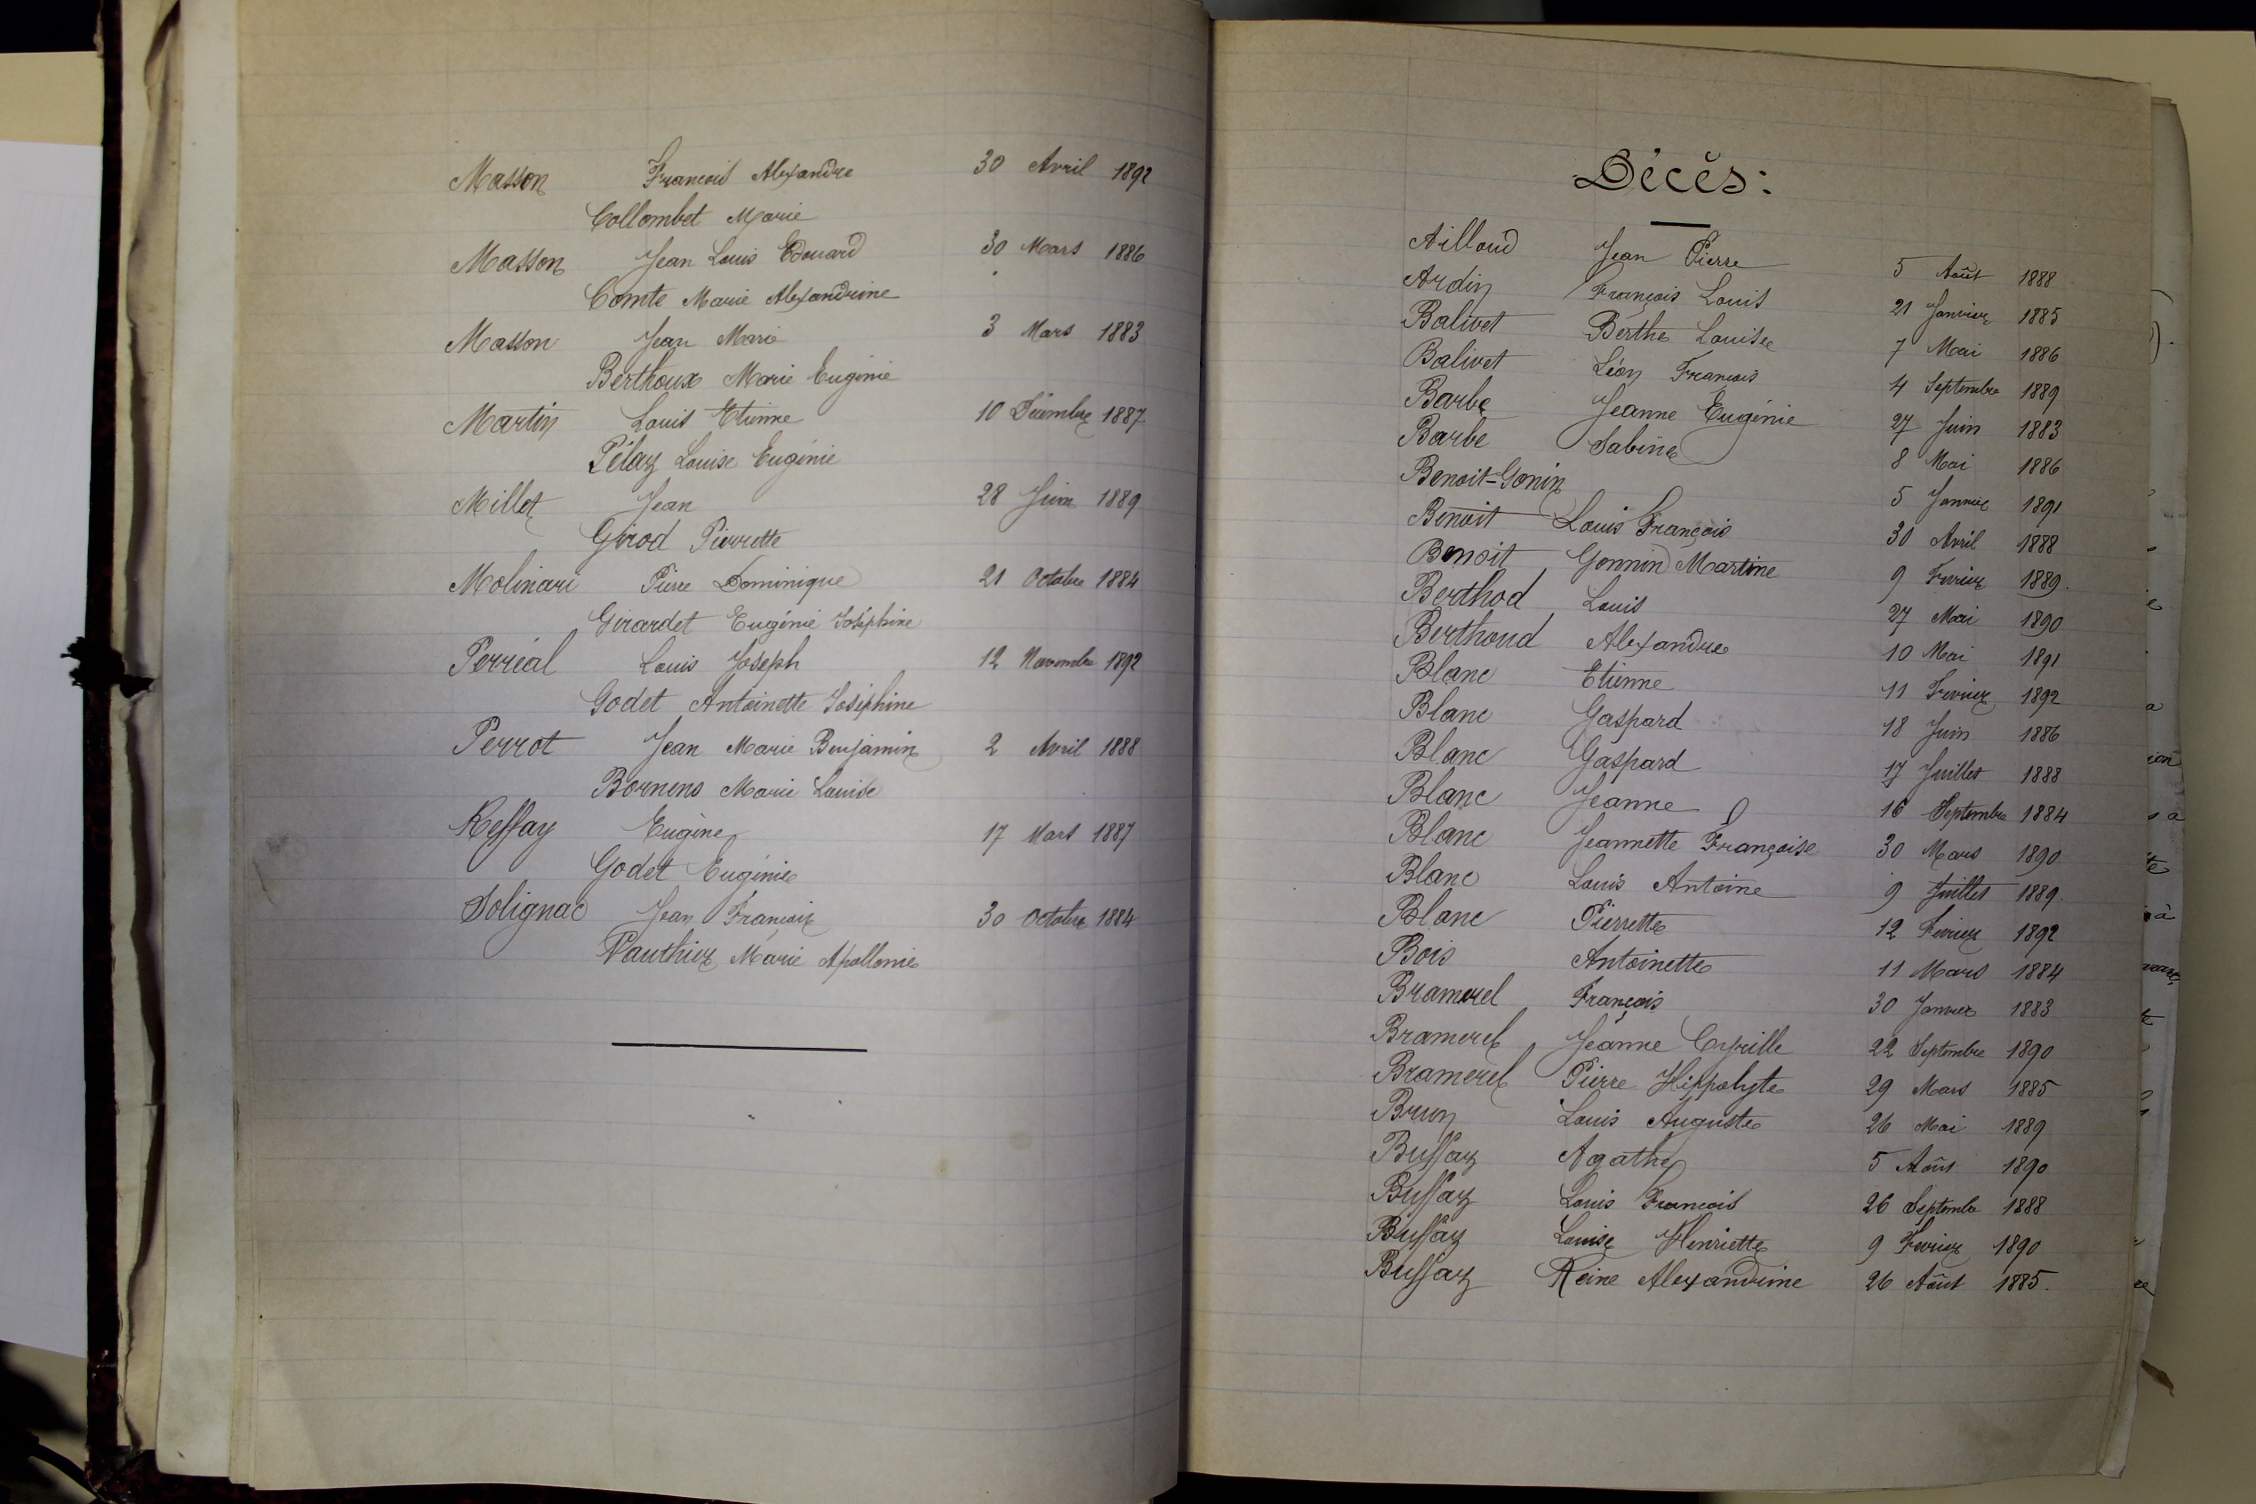 Masson François Alexandre 30 Avril 1892
Collombet Marie
Masson Jean Louis Edouard 30 Mars 1886
Comte Marie Alexandrine
Masson Jean Marie 3 Mars 1883
Berthoux Marie Eugénie
Martin Louis Etienne 10 Décembre 1887
Pélaz Louise Eugénie
Millet Jean 28 Juin 1889
Girod Pierrette
Molinari Pierre Dominique 21 Octobre 1884
Girardet Eugénie Joséphine
Perréal Louis Joseph 12 Novembre 1892
Godet Antoinette Joséphine
Perrot Jean Marie Benjamin 2 Avril 1888
Bornens Marie Louise
Reffay Eugène 17 Mars 1887
Godet Eugénie
Solignac Jean François 30 Octobre 1884
Vauthier Marie Apollonie
Décès:
Ailloud Jean Pierre 5 Août 1888
Ardin François Louis 21 Janvier 1885
Balivet Berthe Louise 7 Mai 1886
Balivet Léon François 4 Septembre 1889
Barbe Jeanne Eugénie 27 Juin 1883
Barbe Sabine 8 Mai 1886
Benoit-Gonin 5 Janvier 1891
Benoit Louis François 30 Avril 1888
Benoit Gonnin Martine 9 Fevrier 1889.
Berthod Louis 27 Mai 1890
Berthoud Alexandre 10 Mai 1891
Blanc Etienne 11 Fevrier 1892
Blanc Gaspard 18 Juin 1886
Blanc Gaspard 17 Juillet 1888
Blanc Jeanne 16 Septembre 1884
Blanc Jeannette Françoise 30 Mars 1890
Blanc Louis Antoine 9 Juillet 1889.
Blanc Pierrette 12 Fevrier 1892
Bois Antoinette 11 Mars 1884
Bramerel François 30 Janvier 1883
Bramerel Jeanne Cyrille 22 Septembre 1890
Bramerel Pierre Hippolyte 29 Mars 1885
Brun Louis Auguste 26 Mai 1889
Buffaz Agathe 5 Août 1890
Buffaz Louis François 26 Septembre 1888
Buffaz Louise Henriette 9 Fevrier 1890
Buffaz Reine Alexandrine 26 Août 1885.